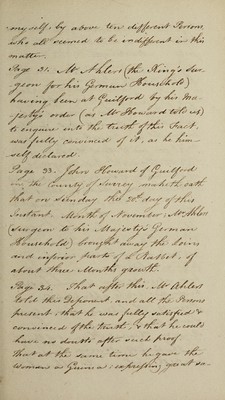 myself, by above ten different Persons
who all seemed to be indifferent in this
matter.
Page 31. Mr Ahlers (the King's Sur-
geon for his German Household)
having been at Guilford by his Ma-
jesty's order (as Mr Howard told us)
to enquire into the truth of this Fact,
was fully convinced of it, as he him-
self declared.
Page 33. John Howard of Guilford
in the County of Surrey maketh oath
that on Sunday the 20th day of this
Instant Month of November, Mr Ahlers
(Surgeon to his Majesty's German
Household) bought away the loins
and inferior parts of a Rabbet, of
about three Months growth.
Page 34. That after this Mr Ahlers
told this Deponent and all the Persons
present that he was fully satisfied &
convinced of the truth, & that he could
have no doubts after such proof.
That at the same time he gave the
woman a Guinea expressing great sa-